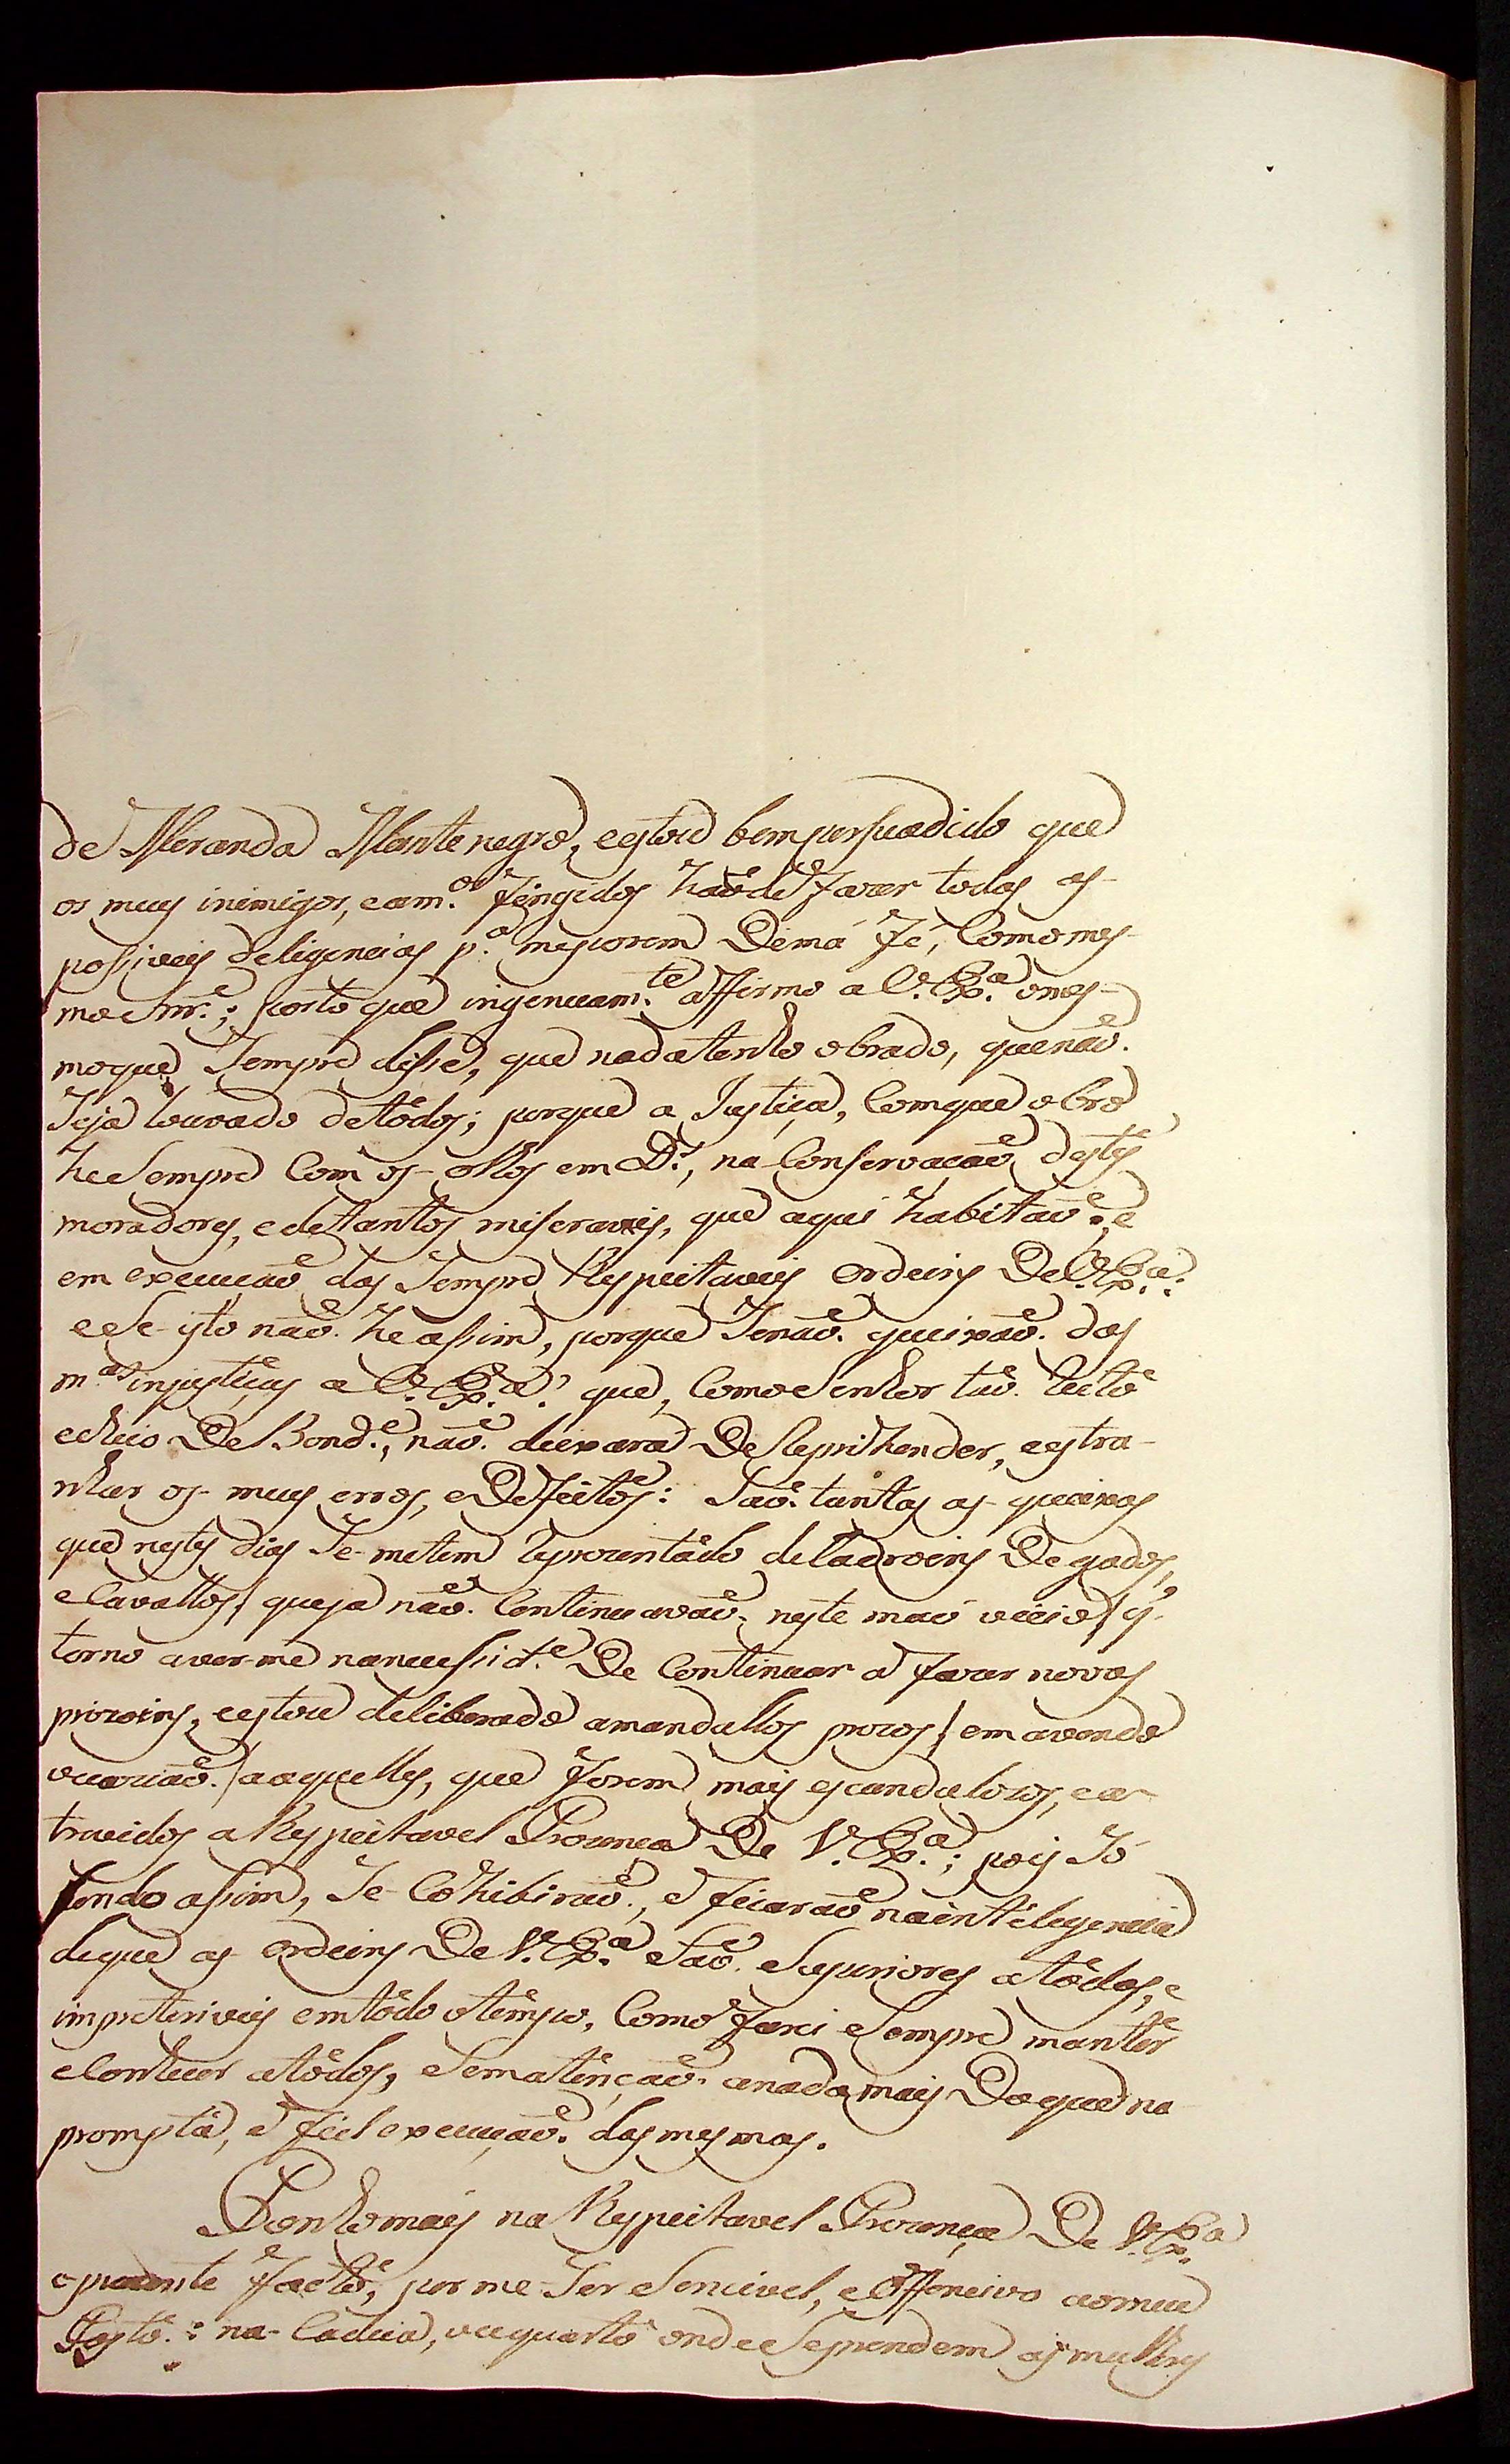 de Miranda Montenegro, eestou bempersuadido que
os meus inimigos, eam.os fingidos haõde fazer todas as
possiveis deligencias p.a meporem Demá Fé, Comomes-
mo Snr.e; posto que ingenuam.te affirmo a V. Ex.a omes-
moque Sempre disse, que nadatenho obrado, quenaõ.
Seja louvado detôdos; porque a Justiça, Comque obro
he Sempre Com os olhos em D.s, na Conservacaõ destes
moradores, edetantos miseraveis, que aqui habitaõ., e
em execucaõ das Sempre Respeitaveis Ordeins DeV. Ex.a:
eSe isto naõ. he assim, porque Senaõ. queixaõ. das
m.as injustiças a V. Ex.a? que, Como Senhor taõ. Recto
echeio De Bond.e, naõ. deixara De Reprihender, eestra-
nhar os meus erros, eDefeitos: Saõ. tantas as queixas
que nestes dias Se metem Reprezentado deladroeins De gados,
eCavallos/ queja naõ. Continuavaõ. neste maó vicio/ q̃.
torno aver-me nanecessid.e De Continuar a fazer novas
prizoins, eestou deliberado amandallos prezos/ em avendo
ocaziaõ./ aaquelles, que forem mais escandalozos, ea-
trevidos a Respeitavel Prezença De V. Ex.a; pois Só
sendo assim, Se Cohibiraõ., e ficaraõ naintelegencia
deque as Ordeins De V. Ex.a Saõ. Superiores atôdos, e
impreteriveis emtôdo otempo, Como farei Sempre manter
eConhecer atôdos, Sematençaõ. anada mais Doque na
prompta, e fiel execuçaõ. das mesmas.
Ponho mais na Respeitavel Prezença De V. Ex.a
oprezente facto, por me Ser Sencivel, eOffencivo aomeu
Posto.: na Cadeia, ouquarto onde Seprendem as mulheres